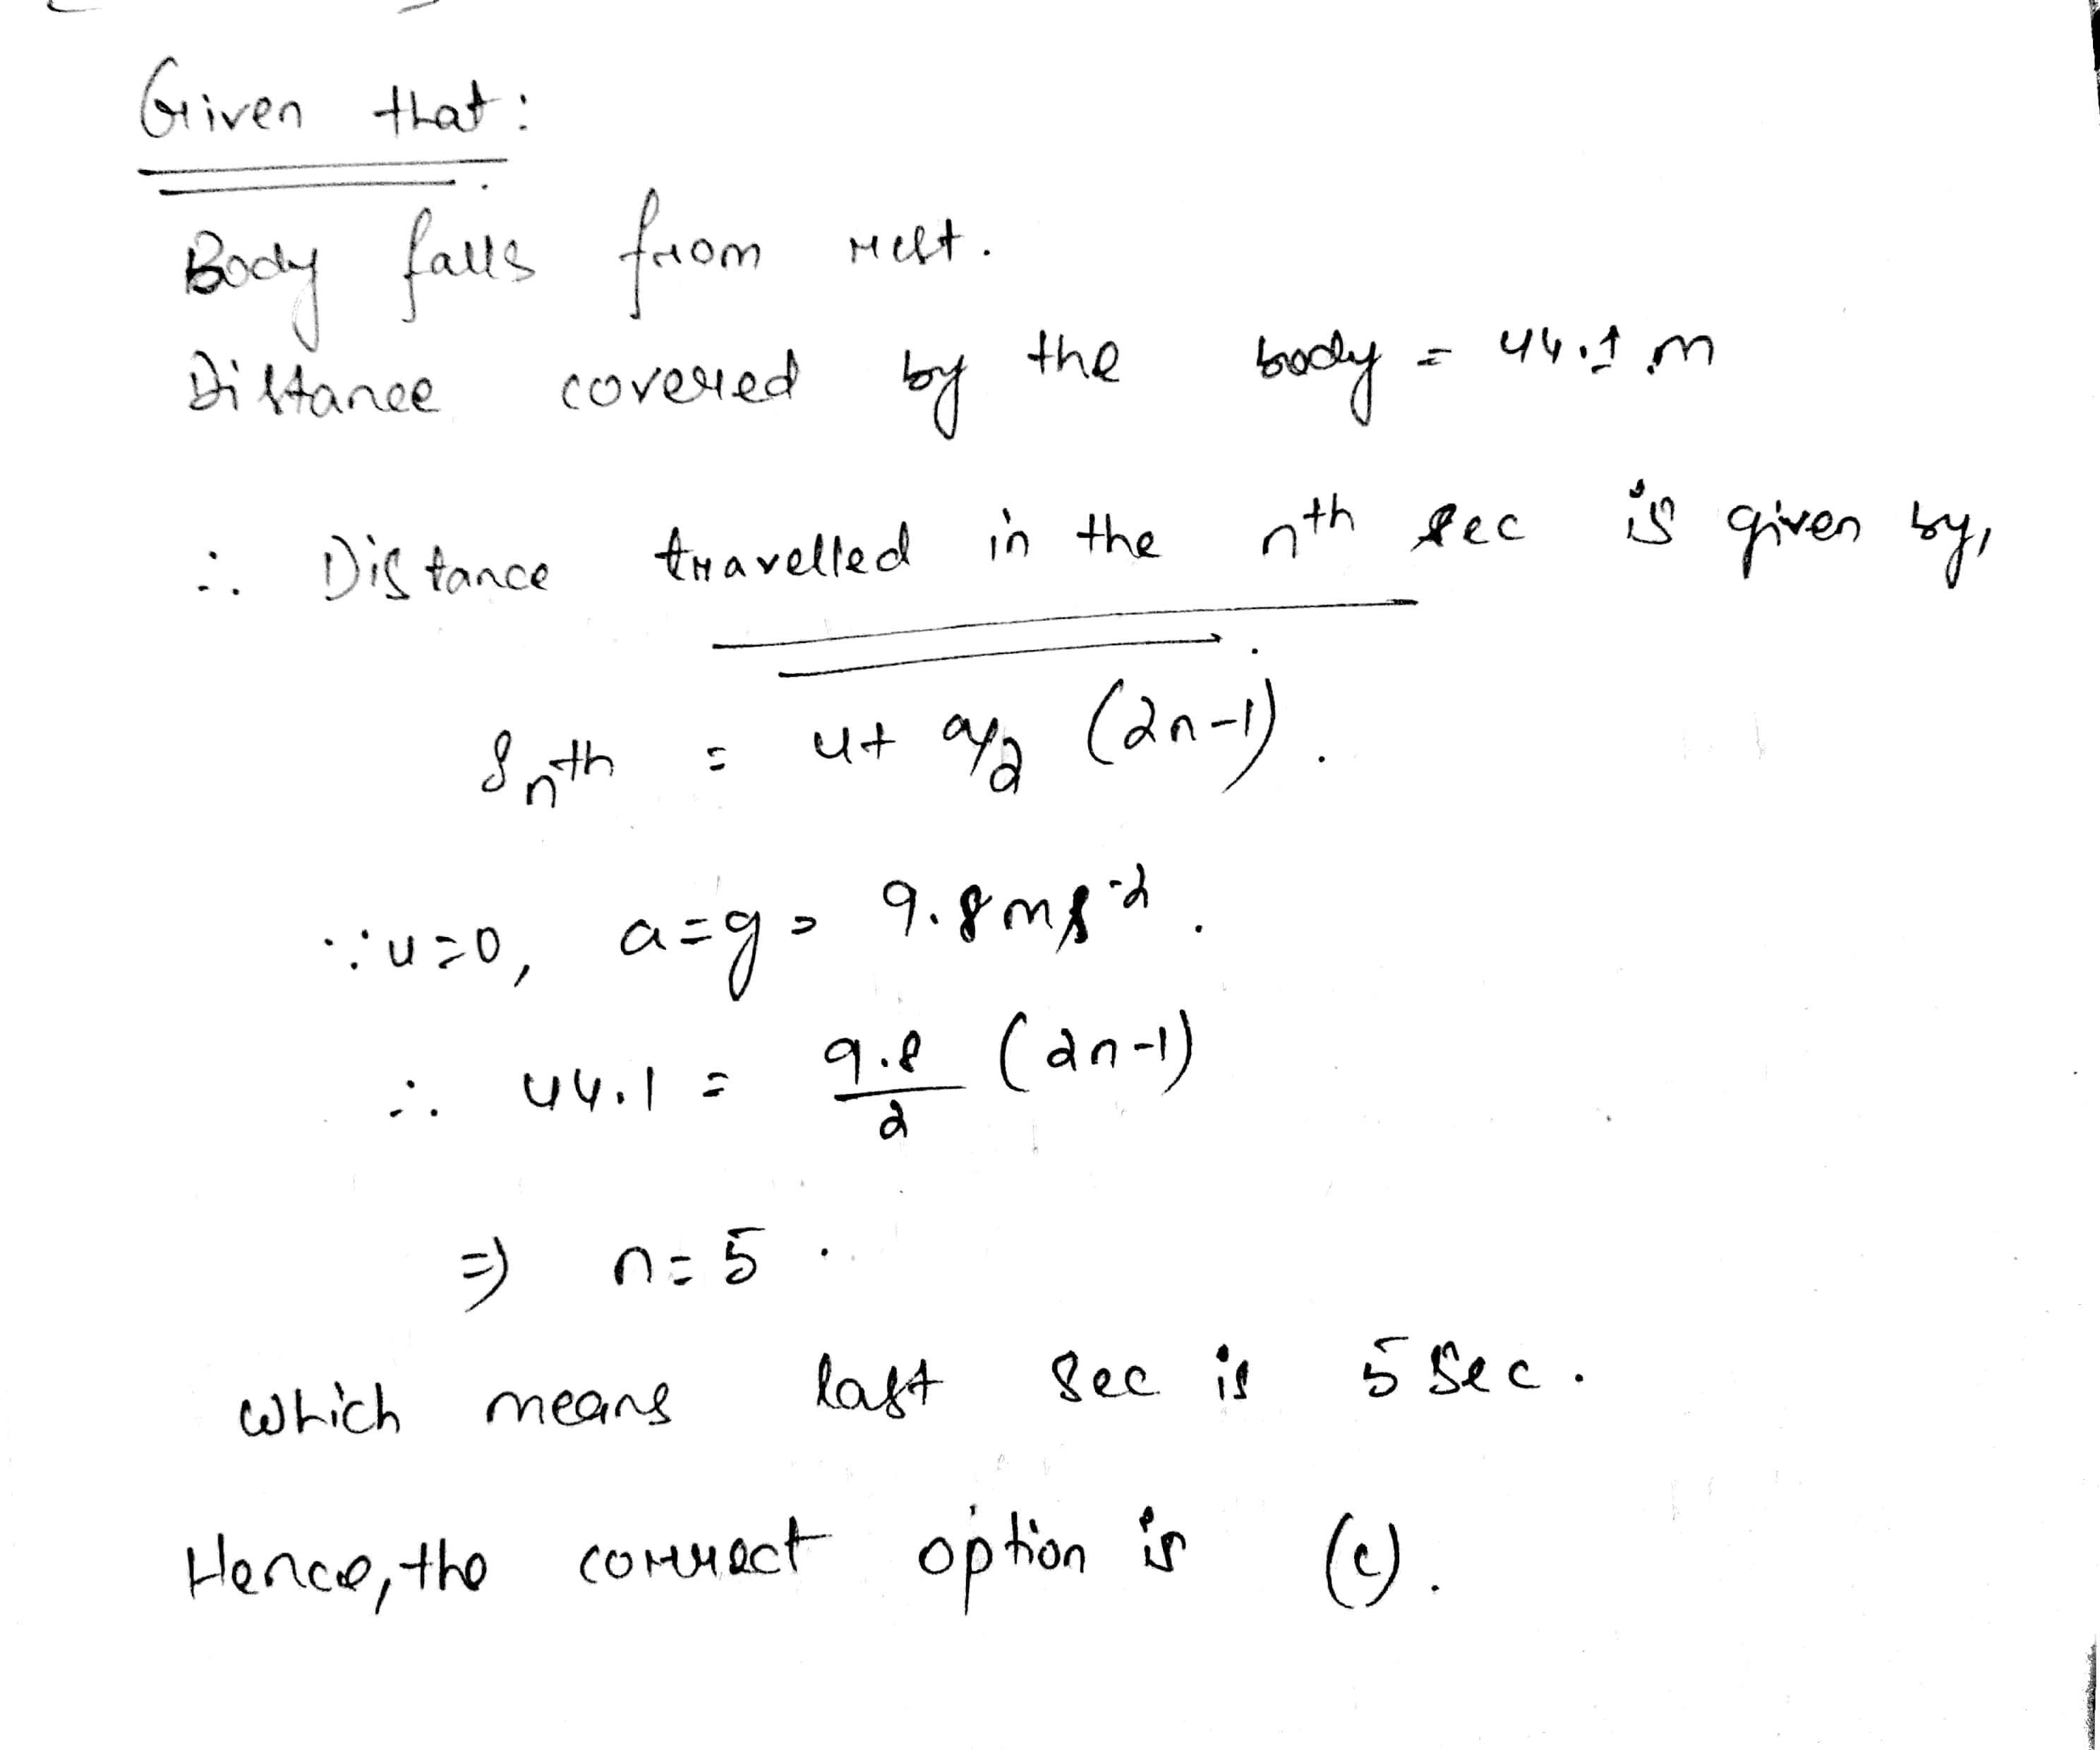 Given that:
Body falls from rest.
Distance covered by the body = 44.1 m
∴ Distance travelled in the nth sec is given by,
Snth = u+ a/2 (2n-1).
∵ u=0, a=g= 9.8ms⁻².
∴ 44.1 = 9.8/2 (2n-1)
⇒ n=5.
which means last sec is 5 sec.
Hence, the correct option is (c).